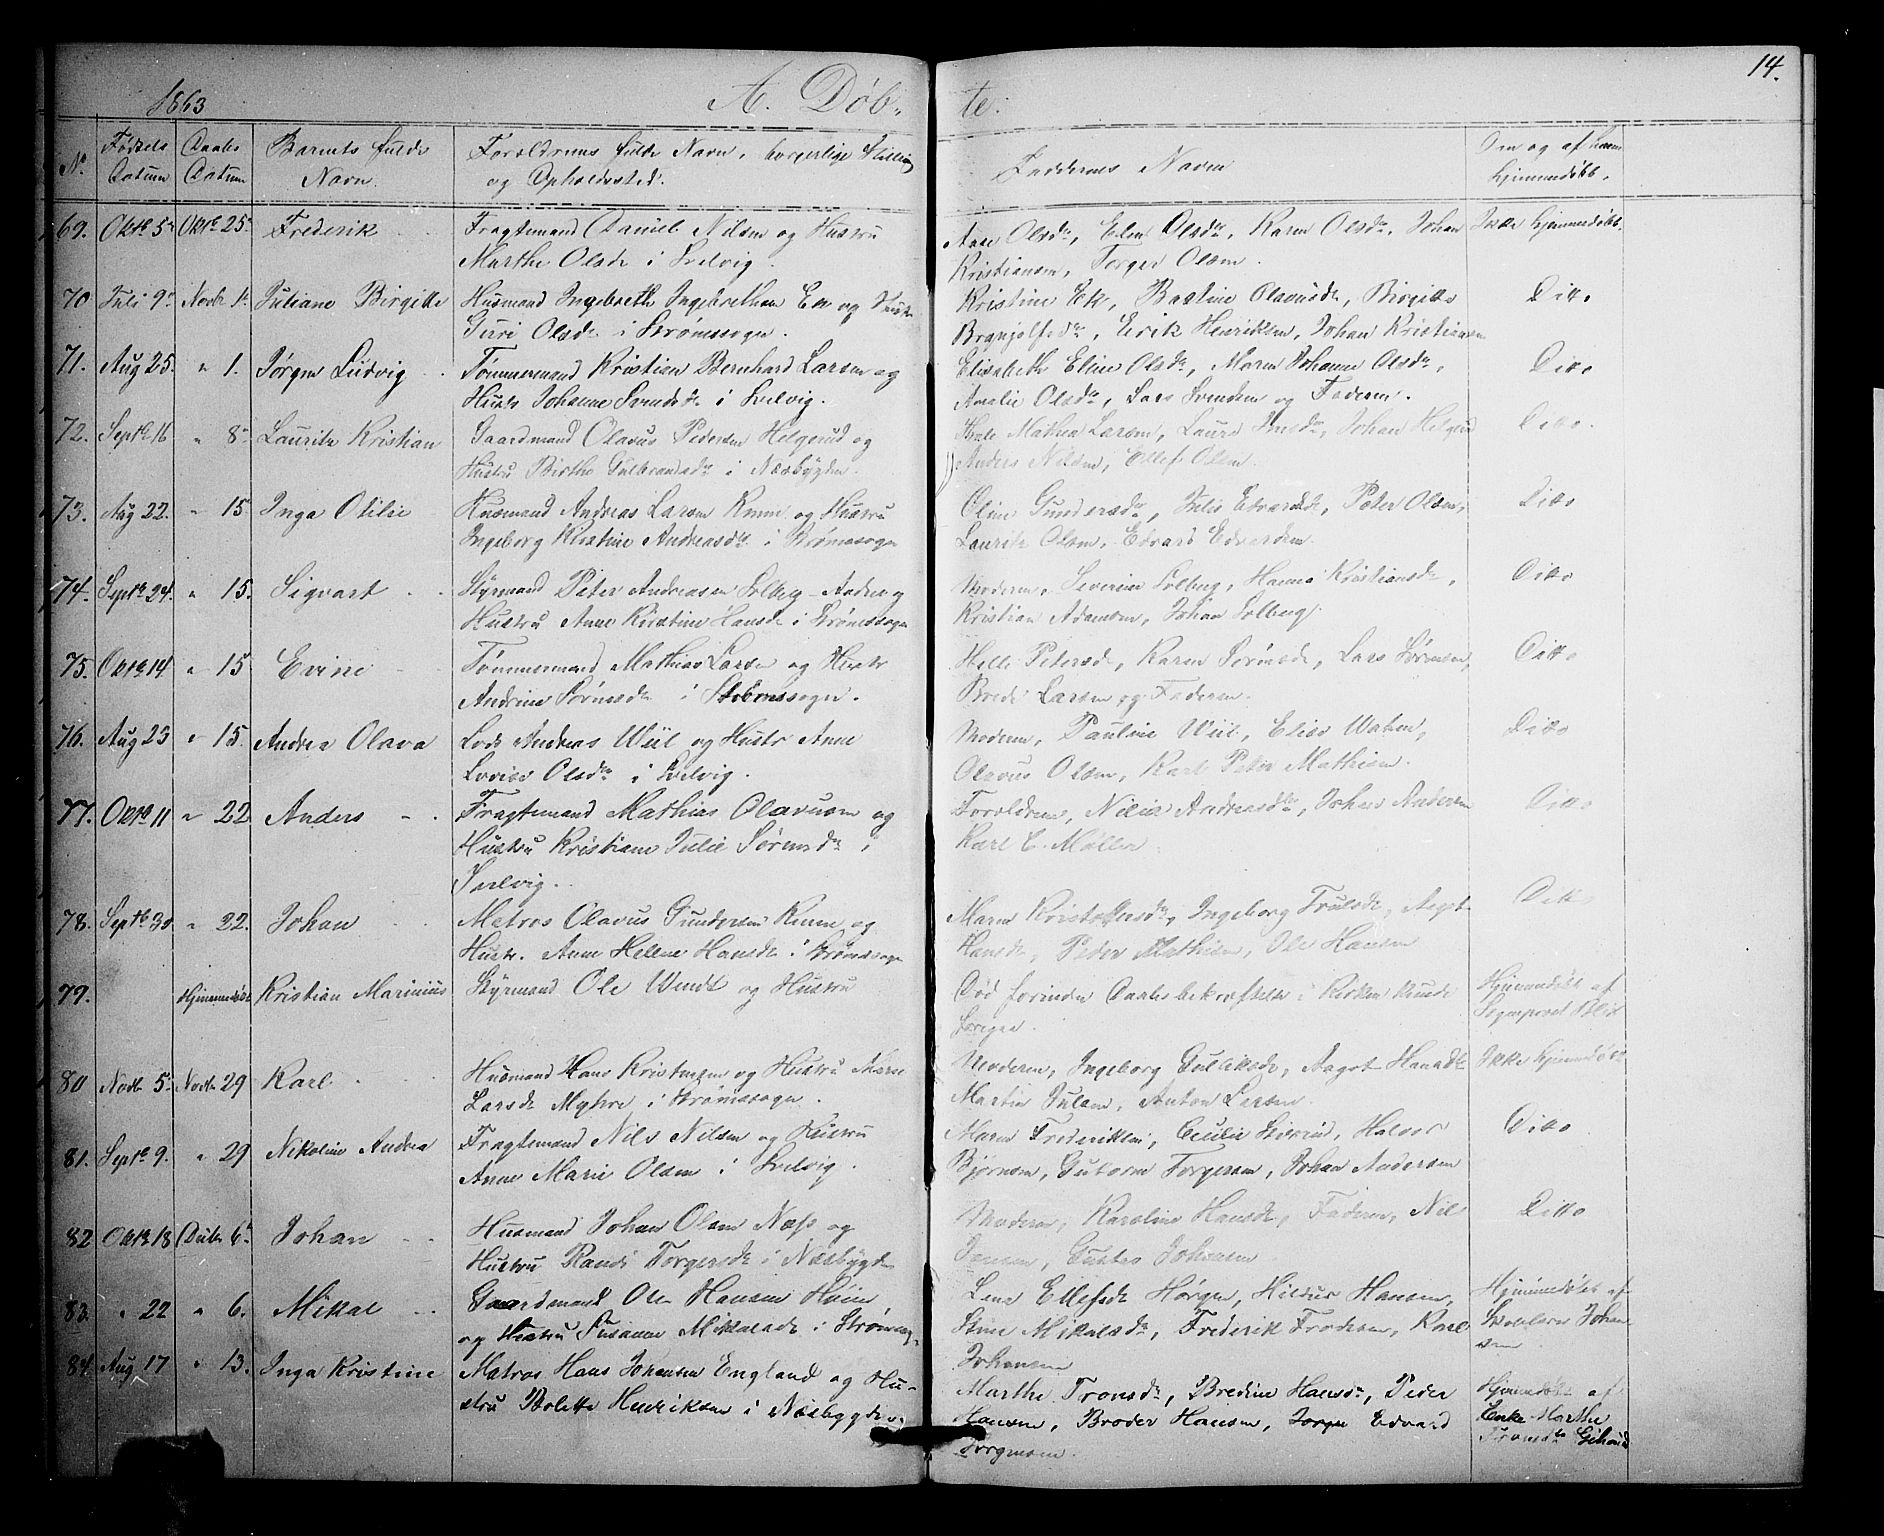 14.
1863
A. Døb-
te.
No.
Fødsels Datum
Daabs Datum
Barnets fulde Navn.
Forældrenes fulde Navn, borgerlige Stilling og Opholdssted.
Faddernes Navn
Om og af hvem hjemmedøbt.
69. Oktb 5 Oktb 25 Frederik Fragtemand Daniel Nilsen og Hustru
Marthe Olsdr i Svelvig.
Aase Olsdr, Elen Olsdr, Karen Olsdr, Johan
Kristiansen, Torger Olsen.
Ikke hjemmedøbt.
70 Juli 9 Novb 1 Juliane Birgitte Husmand Ingebreth Ingebrethsen Ek og Hustr
Guri Olsdr i Strømssogn.
Kristine Ek, Bastine Olavusdr, Birgitte
Brynjolfsdr, Erik Henriksen, Johan Kristiansen
Ditto
71. Aug 25. " 1. Jørgen Ludvig Tømmermand Kristian Bernhard Larsen og
Hustr Johanne Svendsdr i Svelvig.
Elisabeth Eline Olsdr, Maren Johanne Olsdr,
Amalie Olsdr, Lars Svendsen og Faderen.
Ditto
72. Septb 16 " 8 Lauritz Kristian Gaardmand Olavus Pedersen Helgerud og
Hustru Birthe Gulbrandsdr i Næsbygden.
Mathea Larsen, Johan Helgerud
Anders Nilsen, Ellef Olsen.
Ditto.
73. Aug 22. " 15 Inga Otilie Husmand Andreas Larsen og Hustru
Ingeborg Kirstine Andreasdr i Strømssogn
Oline Gundersdr, Julie Edvardsdr, Peter Olsen,
Lauritz Olsen, Edvard Edvardsen.
Ditto
74. Septb 24. " 15. Sigvart Styrmand Peter Andreasen Solberg
Hustru Anne Kirstine Hansdr i Strømssogn
Moderen, Severine Solberg, Hanna Kristiansdr,
Kristian Adamsen, Johan Solberg.
Ditto
75. Oktb 14 " 15 Evine Tømmermand Mathias Larsen og Hustr
Andrine Sørensdr i Strømssogn.
Helle Petersdr, Karen Sørensdr, Lars Sørensen,
Brede Larsen og Faderen.
Ditto
76. Aug 23 " 15. Andrea Olava Lods Andreas Wiil og Hustr Anne
Lovise Olsdr i Svelvig.
Moderen, Pauline Wiil, Elise Watsen,
Olavus Olsen, Karl Peter Mathisen.
Ditto
77. Oktb 11 " 22 Anders Fragtemand Mathias Olavusen og
Hustru Kristiane Julie Sørensdr i
Svelvig.
Forældrene, Nilia Andreasdtr, Johan Andersen
Karl E. Møller
Ditto
78. Septb 30 " 22. Johan Matros Olavus Gundersen og
Hustr. Anne Helene Hansdr i Strømssogn
Maren Kristoffersdr, Ingeborg Trulsdr, Aagot
Hansdr, Peder Mathisen, Ole Hansen
Ditto
79. Hjemmedøbt Kristian Marinius Styrmand Ole Wendt og Hustru
Død forinden Daabsbekræftelse i Kirken kunde
foregaa.
Hjemmedøbt af
Sognepræst
80 Novb 5 Novb 29 Karl Husmand Hans Kristensen og Hustru Maren
Larsdr Myhre i Strømssogn.
Moderen, Ingeborg Gulliksdr, Aagot Hansdr
Martin Julsen, Anton Larsen.
Ikke hjemmedøbt
81. Septb 9. " 29 Nikoline Andrea Fragtemand Nils Nilsen og Hustru
Anne Marie Olsen i Svelvig.
Maren Frederiksen, Cecilie, Halvor
Bjørnsen, Gutorm Torgersen, Johan Andersen
Ditto
82 Oktb 18 Decbr 6 Johan Husmand Johan Olsen Næss og
Hustru Randi Torgersdr i Næsbygden
Moderen, Karoline Hansdr, Faderen, Nils
Jensen, Gustav Johansen
Ditto
83. " 22 " 6. Mikal Gaardmand Ole Hansen Høien
og Hustru Susanne Mikalsdr i Strømssogn
Lene Ellefsdr Hørgen, Hansen,
Stine Mikalsdr, Frederik Frodesen, Karl
Johansen
Hjemmedøbt af
Skolelærer Johan
sen
84. Aug 17 " 13. Inga Kristine Matros Hans Johansen England og Hu-
stru Bolette Henriksen i Næsbygden.
Marthe Tronsdr, Bredine Hansdr, Peder
Hansen, Broder Hansen, Jørgen Edvard
Jørgensen.
Hjemmedøbt af
Enke Marthe
Tronsdtr